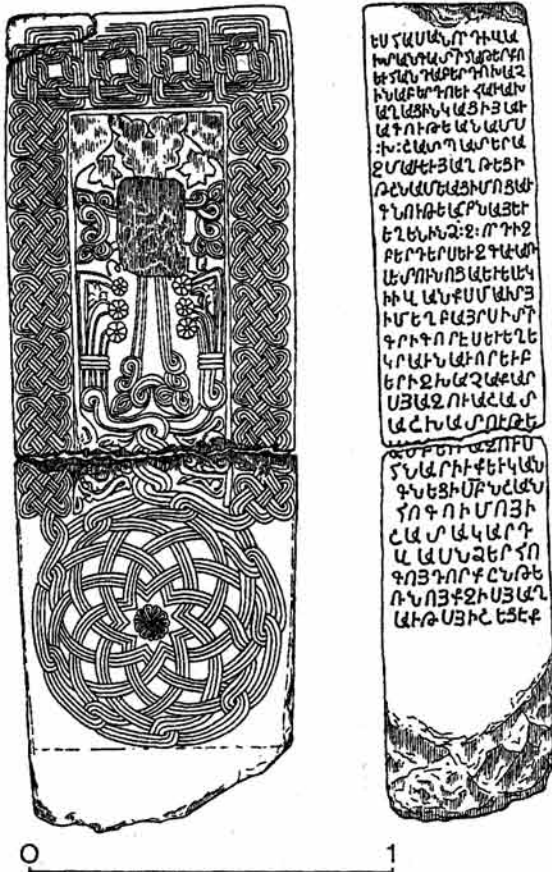 ԵՍՀԱՍԱՆՈՐԴԻՎԱ
ԽՏԱՆԳԱՄԻՏՀԱԹԵՐՔՈ
ԵՒՀԱՆԴԱԲԵՐԴՈԽԱՉ
ԻՆԱԲԵՐԴՈԵՒՀԱՒԱԽ
ԱՂԱՑԻՆԿԱՑԻՅԱՒ
ԱԳՈՒԹԵԱՆԱՄՍ
:Խ:ՇԱՏՊԱՏԵՐԱ
ԶՄԱՒՅԱՂԹԵՑԻ
ԹՇՆԱՄԵԱՑԻՄՈՑԱՒ
ԳՆՈՒԹԵԱՄԲՆԱՅԵՒ
ԵՂԵՆԻՆՁ:Զ:ՈՐԴԻԶ
ԲԵՐԴԵՐՍԵՒԶԳԱՒԱՌ
ՍԵՏՈՒՆՈՑԱԵՒԵԿ
ԻԻՎԱՆՔՍՄԱՒՏՅ
ԻՄԵՂԲԱՅՐՍԻՄՏ
ԳՐԻԳՈՐԵՍԵՒԵՂԵ
ԿՐԱՒՆԱՒՈՐԵՒԲ
ԵՐԻԶԽԱՉԱՔԱՐ
ՍՅԱԶՈՒԱՇԱՏ
ԱՇԽԱՏՈՒԹԵ
ԱՄԲԵՒԱԶՈՒՍ
ՏՆԱՐԻՒՔԵՒԿԱՆ
ԳՆԵՑԻՄԲՆՇԱՆ
ՀՈԳՈՒՄՈՅԻ
ՇԱՏԱԿԱՐԴ
Ա ԱՍՆՁԵՐՀՈ
ԳՈՅԴՈՐՔԸՆԹԵ
ՌՆՈՅՔԶԻՍՅԱՂ
ԱՒԹՍՅԻՇԵՑԵՔ
0 1